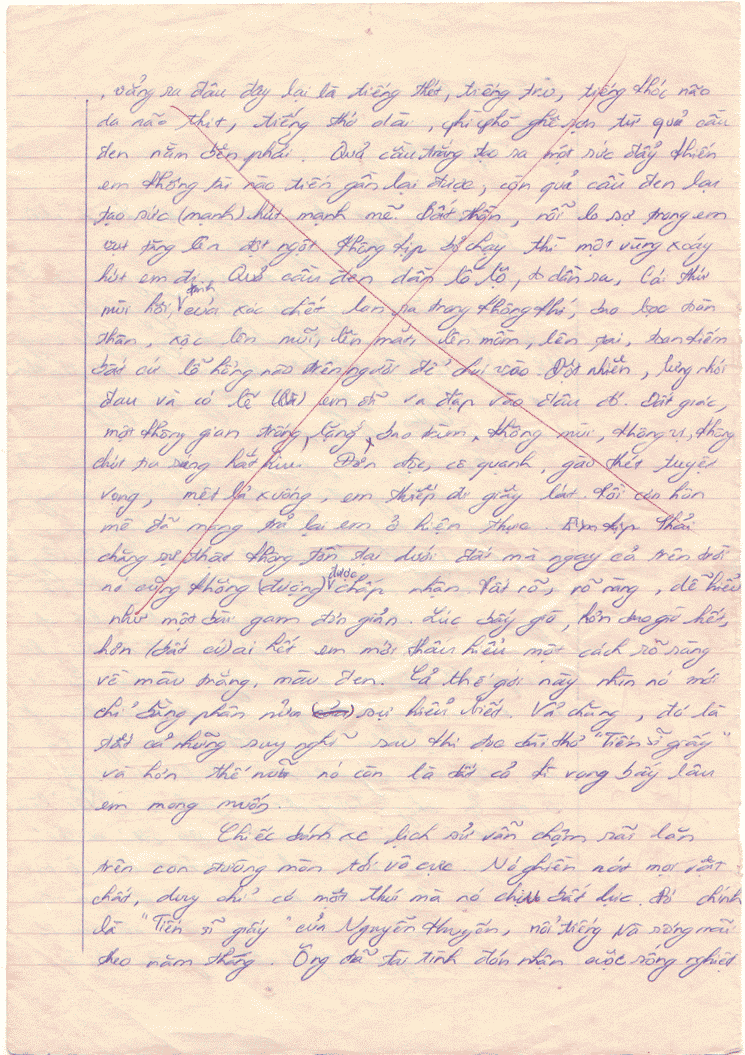 , vẳng ra đâu đây lại là tiếng thét, tiếng trù, tiếng thóc não
da não thịt, tiếng thở dài, phì phò ghê sợn từ quả cầu
đen nằm bên phải. Quả cầu trắng tạo ra một sức đẩy khiến
em không tài nào tiến gần lại được, còn quả cầu đen lại
tạo sức (mạnh) hút mạnh mẽ. Bất thần, nỗi lo sợ trong em
vụt tăng lên đột ngột không kịp bỏ chạy thì một vùng xoáy
hút em đi. Quả cầu đen dần lồ lộ, to dần ra, Cái thứ
mùi hôi tanh của xác chết lan ra trong không khí, bao bọc toàn
thân, xộc lên mũi, lên mắt, lên mồm, lên tai, toan tiến
bất cứ lỗ hổng nào trên người để chui vào. Đột nhiên, lưng nhói
đau và có lẽ em đã va đập vào đâu đó. Bất giác,
một không gian trắng, lặng, bao trùm, không mùi, không vị, không
chút tia sáng hắt hiu. Đơn độc, cô quạnh, gào thét tuyệt
vọng, mệt lả xuống, em thiếp đi giây lát. Rồi cơn hôn
mê đã mang trả lại em ở hiện thực. Phải
chăng sự thật không tồn tại dưới đất mà ngay cả trên trời
nó cũng không (đượng) được chấp nhận. Rất rõ, rõ ràng, dễ hiểu
như một gam đơn giản. Lúc bấy giờ, hơn bao giờ hết,
hơn (bất cứ) ai hết em mới thấu hiểu một cách rõ ràng
về màu trắng, màu đen. Cả thế giới này nhìn nó mới
chỉ bằng phân nửa sự hiểu biết. Vả chăng, đó là
tất cả những suy nghĩ sau khi đọc bài thơ "Tiến sĩ giấy"
và hơn thế nữa nó còn là tất cả kì vọng bấy lâu
em mong muốn.
Chiếc bánh xe lịch sử vẫn chậm rãi lăn
trên con đường mòn tới vô cực. Nó nghiền nát mọi vật
chất, duy chỉ có một thứ mà nó chịu bất lực. Đó chính
là "Tiến sĩ giấy" của Nguyễn Khuyến, nổi tiếng và sống mãi
theo năm tháng. Ông đã tài tình đón nhận cuộc sống nghiệt